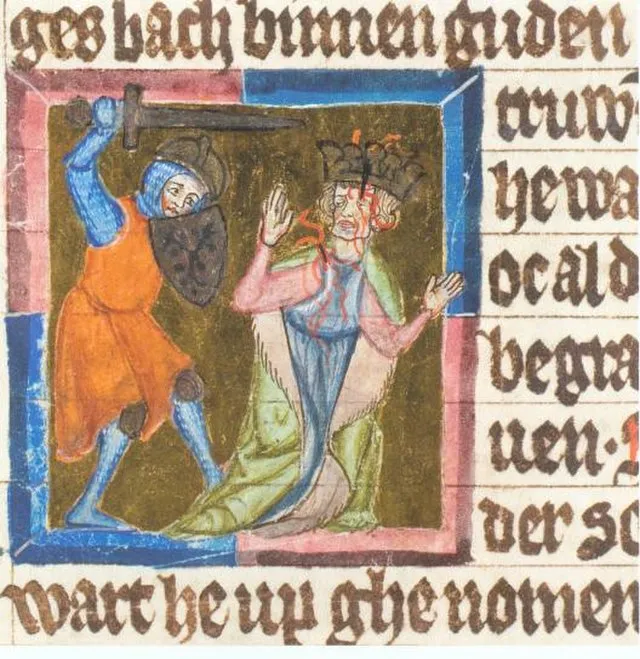 ges bach binnen guden
truw
hewa
ocald
begra
uen·
der sc
wart he up ghe nomen